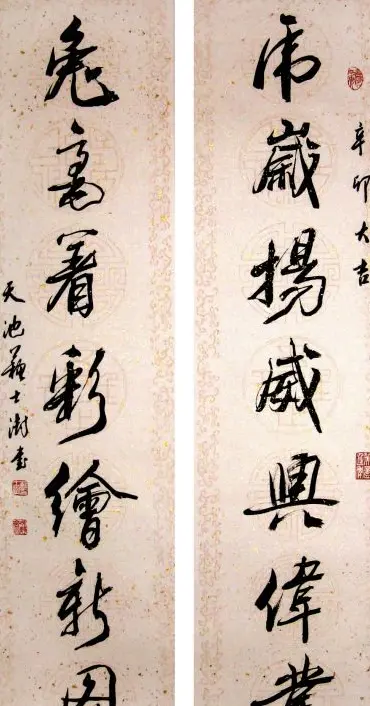 辛卯大吉
虎歲揚威興偉業
兔毫着彩繪新图
天池蘇士澍書